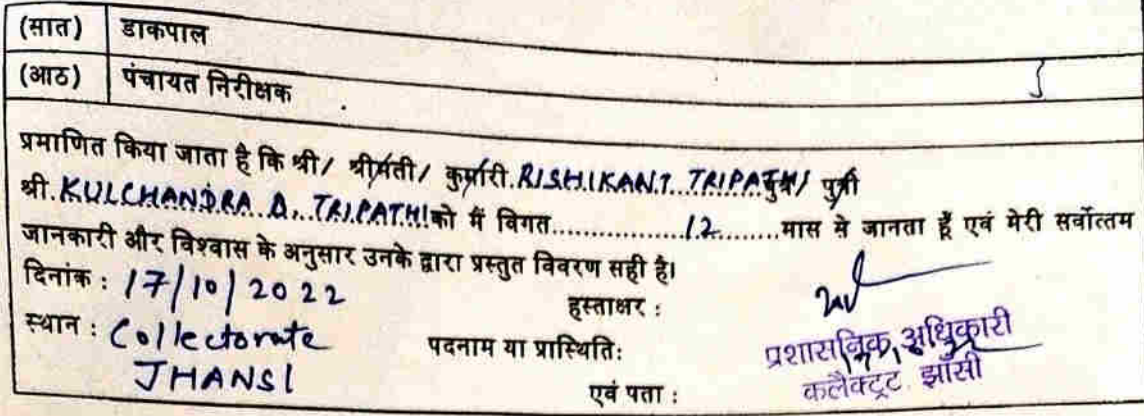 (सात) डाकपाल
(आठ) पंचायत निरीक्षक
प्रमाणित किया जाता है कि श्री/ श्रीमती/ कुमारी.RISHIKANT TRIPATHI पुत्र/ पुत्री
श्री.KULCHANDRA D. TRIPATHI को मैं विगत.................12.........मास से जानता हूँ एवं मेरी सर्वोत्तम
जानकारी और विश्वास के अनुसार उनके द्वारा प्रस्तुत विवरण सही है।
दिनांक : 17/10/2022
हस्ताक्षर :
स्थान : Collectorate
JHANSI
पदनाम या प्रास्थिति:
प्रशासनिक अधिकारी
एवं पता :
कलैक्ट्रट झाँसी